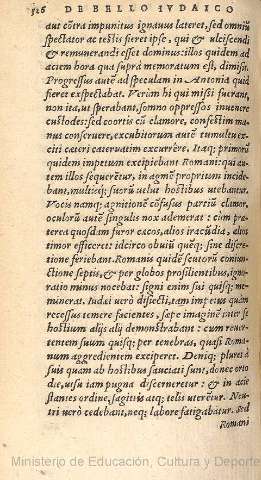 326 DE BELLO IVDAICO
aut cōtra impunitus ignauus lateret, sed omniū
spectator ac testis fieret ipse, qui & ulciscendi
& remunerandi esset dominus: illos quidem ad
hora qua supra memoratum est, dimisit.
Progressus autē ad speculam in Antonia quid
fieret exspectabat. Verùm hi qui missi fuerant,
non ita, ut sperabant, somno oppressos inuenere
custodes: sed coortis cū clamore, confestim ma-
nus conseruere, excubitorum autē tumultu ex-
citi cæteri cateruatim excurrêre. Itaq; primorū
quidem impetum excipiebant Romani: qui au-
tem illos sequerētur, in agmē propritum incide-
bant, multisq; suorū uelut hostibus utebantur.
Vocis namq; agnitionē cōfusus partiū clamor,
oculorū autē singulis nox ademerat: cùm præ-
terea quosdam furor cæcos, alios iracūdia, alios
timor efficeret: idcirco obuiū quēq; sine discre-
tione feriebant. Romanis quidē scutorū coniun-
ctione septis, & per globos prosilientibus, igno-
ratio minus nocebat: signi enim sui quisq; me-
minerat. Iudæi uerò disiecti, tam impetus quàm
recessus temere facientes, sæpe imaginē inter se
hostium alijs alij demonstrabant: cum reuer-
tentem suum quisq; per tenebras, quasi Roma-
num aggredientem exciperet. Deniq; plures à
suis quam ab hostibus sauciati sunt, donec orto
die, uisu iam pugna discerneretur: & in acie
stantes ordine, sagittis atq; telis uterētur. Neu-
tri uerò cedebant, neq; labore fatigabātur. Sed
Romani
Ministerio de Educación, Cultura y Deporte